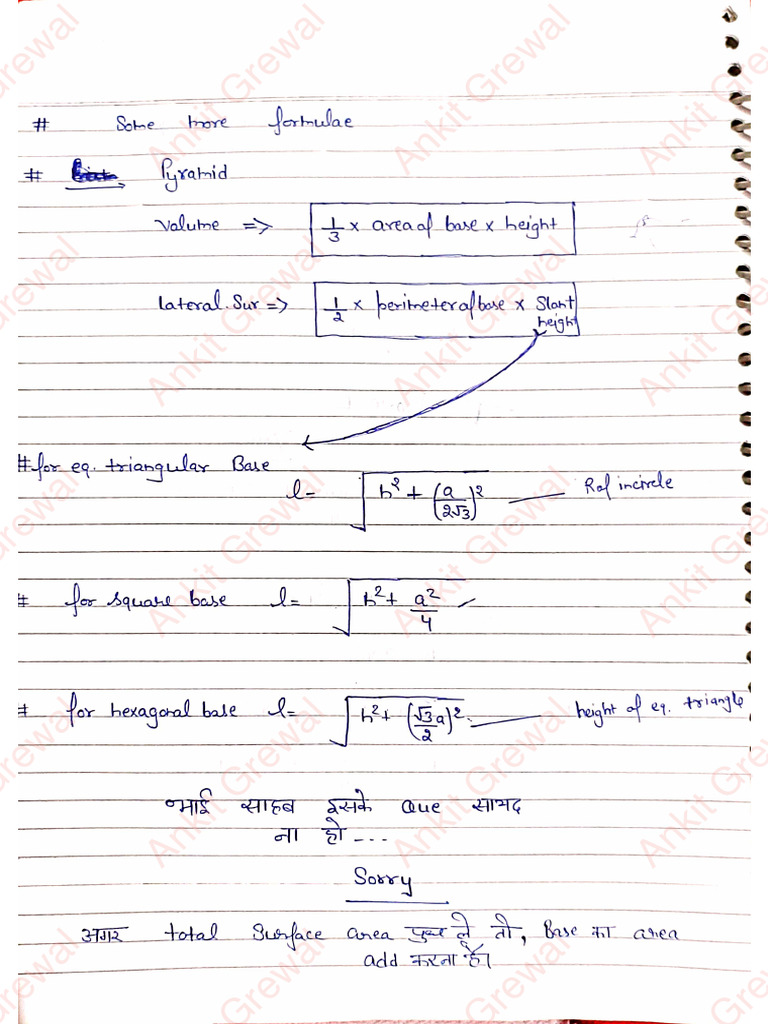 # Some more formulae
# Pyramid
Volume => 1/3 x area of base x height
lateral Sur => 1/2 x perimeter of base x Slant height
# for eq. triangular Base
l = √(h² + (a/2√3)²) — R of incircle
# for square base l = √(h² + a²/4)
# for hexagonal base l = √(h² + (√3a/2)²) — height of eq. triangle
भाई साहब इसके Que सायद
ना हो ---
Sorry
अगर total Surface area पुछ ले तो, Base का area
add करना है।
Ankit Grewal